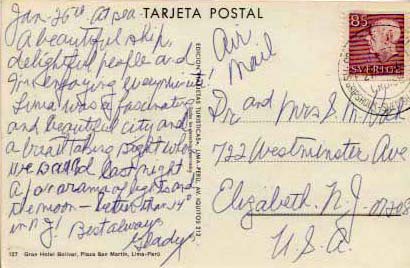 TARJETA POSTAL
Jan. 26th At sea.
A beautiful ship,
delightful people and
I'm enjoying every minute!
Lima was a fascinating
and beautiful city and
a breath taking sight when
we sailed last night
A panorama of lights and
the moon - better than 14°
in N.J! Best always
Gladys
Air
Mail
85
SVERIGE
Dr. and Mrs S. M.
722 Westminster Ave
Elizabeth. N.J.
07208
U.S.A.
127 Gran Hotel Bolivar, Plaza San Martin, Lima-Perú